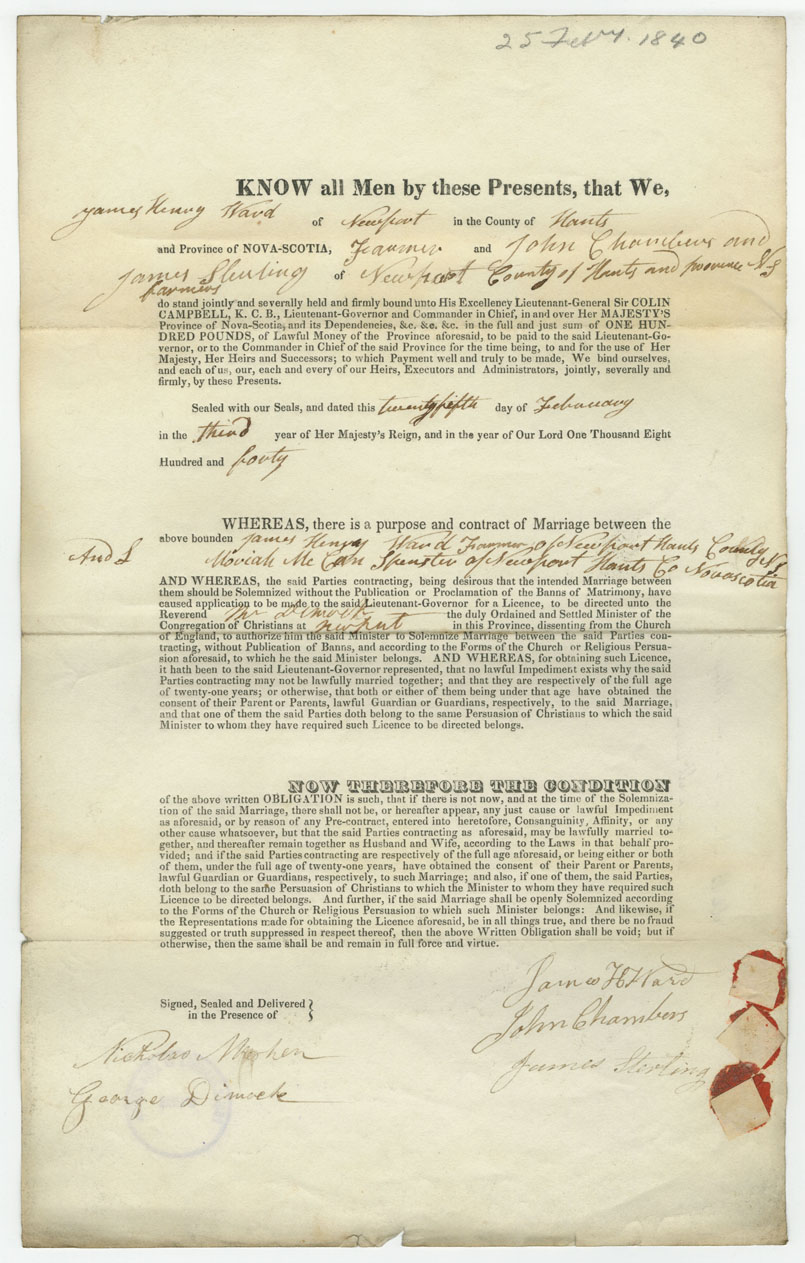 25 Feby. 1840
KNOW all Men by these Presents, that We,
James Henry Ward of Newport in the County of Hants
and Province of NOVA-SCOTIA, Farmer and John Chambers and
James Sterling of Newport County of Hants and province NS
farmers
do stand jointly and severally held and firmly bound unto His Excellency Lieutenant-General Sir COLIN
CAMPBELL, K. C. B., Lieutenant-Governor and Commander in Chief, in and over Her MAJESTY'S
Province of Nova-Scotia, and its Dependencies, &c. &c. &c. in the full and just sum of ONE HUN-
DRED POUNDS, of Lawful Money of the Province aforesaid, to be paid to the said Lieutenant-Go-
vernor, or to the Commander in Chief of the said Province for the time being, to and for the use of Her
Majesty, Her Heirs and Successors; to which Payment well and truly to be made, We bind ourselves,
and each of us, our, each and every of our Heirs, Executors and Administrators, jointly, severally and
firmly, by these Presents.
Sealed with our Seals, and dated this twentyfifth day of February
in the third year of Her Majesty's Reign, and in the year of Our Lord One Thousand Eight
Hundred and forty
WHEREAS, there is a purpose and contract of Marriage between the
above bounden James Henry Ward Farmer of Newport Hants County NS
And Moriah Mc Can Spenster of Newport Hants Co Novascotia
AND WHEREAS, the said Parties contracting, being desirous that the intended Marriage between
them should be Solemnized without the Publication or Proclamation of the Banns of Matrimony, have
caused application to be made to the said Lieutenant-Governor for a Licence, to be directed unto the
Reverend Mr Dimock the duly Ordained and Settled Minister of the
Congregation of Christians at newport in this Province, dissenting from the Church
of England, to authorize him the said Minister to Solemnize Marriage between the said Parties con-
tracting, without Publication of Banns, and according to the Forms of the Church or Religious Persua-
sion aforesaid, to which he the said Minister belongs. AND WHEREAS, for obtaining such Licence,
it hath been to the said Lieutenant-Governor represented, that no lawful Impediment exists why the said
Parties contracting may not be lawfully married together; and that they are respectively of the full age
of twenty-one years; or otherwise, that both or either of them being under that age have obtained the
consent of their Parent or Parents, lawful Guardian or Guardians, respectively, to the said Marriage,
and that one of them the said Parties doth belong to the same Persuasion of Christians to which the said
Minister to whom they have required such Licence to be directed belongs.
NOW THEREFORE THE CONDITION
of the above written OBLIGATION is such, that if there is not now, and at the time of the Solemniza-
tion of the said Marriage, there shall not be, or hereafter appear, any just cause or lawful Impediment
as aforesaid, or by reason of any Pre-contract, entered into heretofore, Consanguinity, Affinity, or any
other cause whatsoever, but that the said Parties contracting as aforesaid, may be lawfully married to-
gether, and thereafter remain together as Husband and Wife, according to the Laws in that behalf pro-
vided; and if the said Parties contracting are respectively of the full age aforesaid, or being either or both
of them, under the full age of twenty-one years, have obtained the consent of their Parent or Parents,
lawful Guardian or Guardians, respectively, to such Marriage; and also, if one of them, the said Parties,
doth belong to the same Persuasion of Christians to which the Minister to whom they have required such
Licence to be directed belongs. And further, if the said Marriage shall be openly Solemnized according
to the Forms of the Church or Religious Persuasion to which such Minister belongs: And likewise, if
the Representations made for obtaining the Licence aforesaid, be in all things true, and there be no fraud
suggested or truth suppressed in respect thereof, then the above Written Obligation shall be void; but if
otherwise, then the same shall be and remain in full force and virtue.
James H Ward
Signed, Sealed and Delivered
in the Presence of
John Chambers
Nicholas
James Sterling
George Dimock